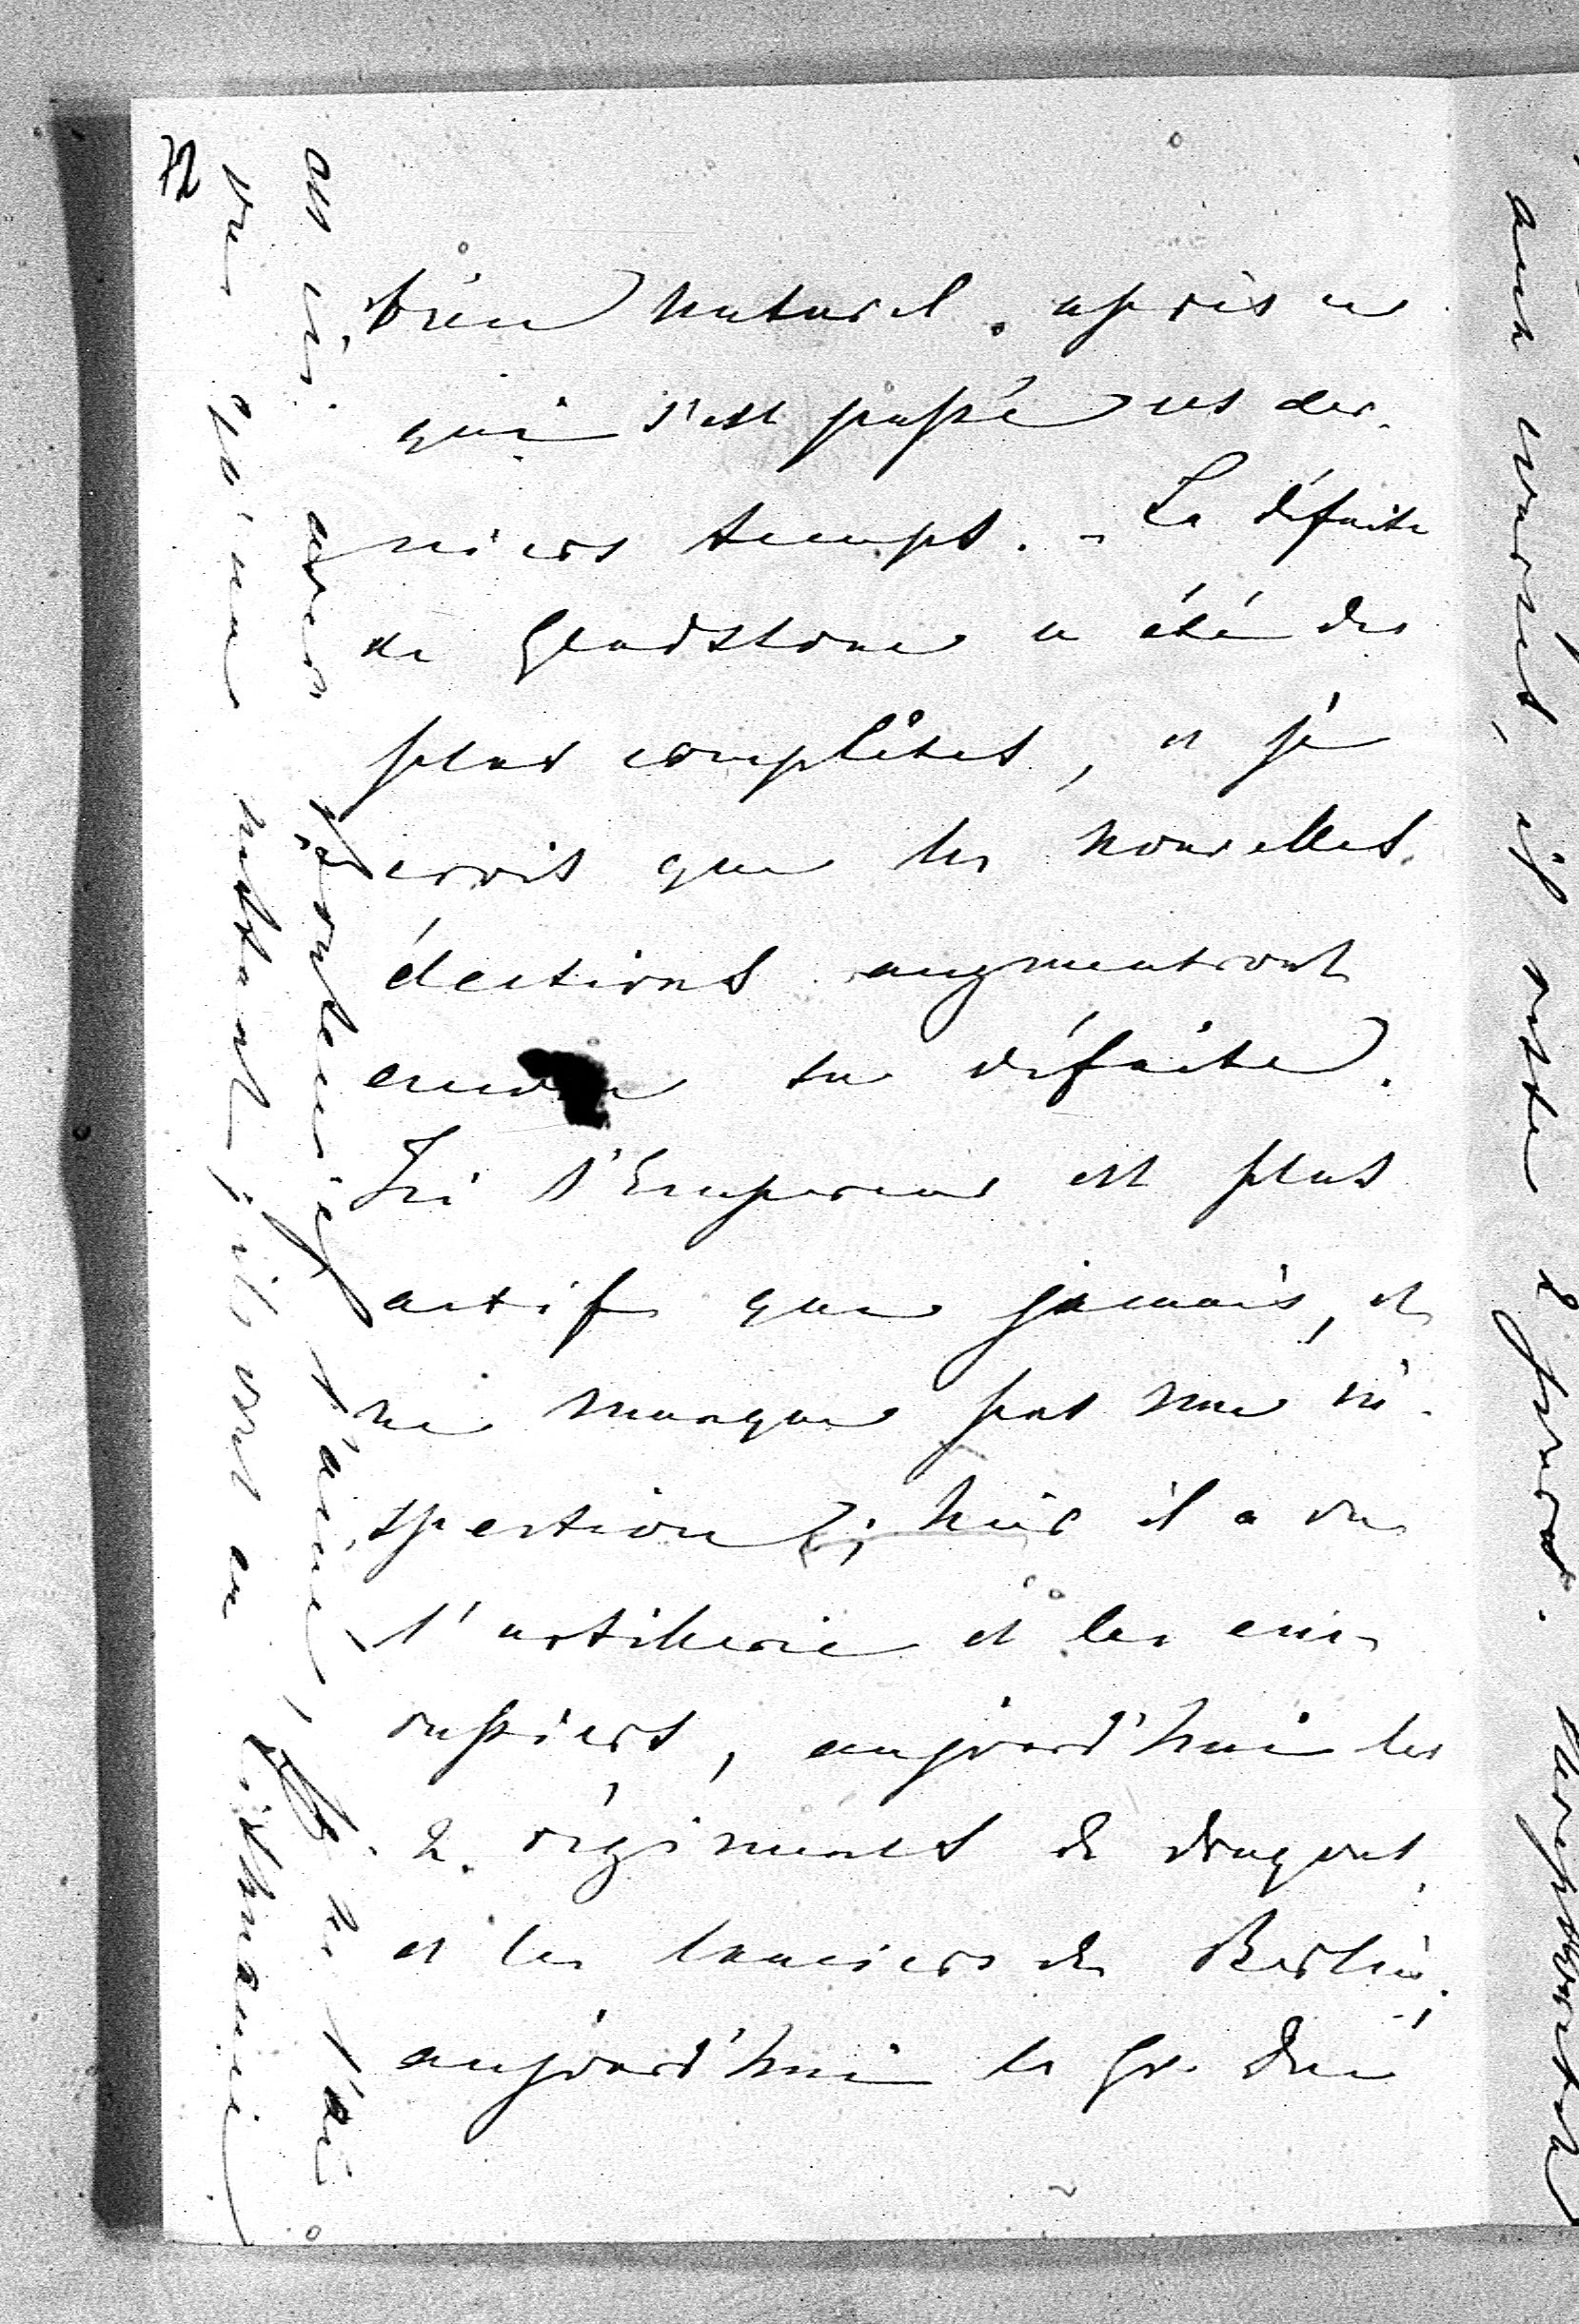 72
bien naturel, après ce
qui s'est passé ces der-
niers temps. - La défaite
de Gladstone a été des
plus complètes, et je
crois que les nouvelles
élections augmentront
encore sa défaite.
Ici l'Empereur est plus
actif que jamais, et
ne manque pas une in-
spection; hier il a vu
l'artillerie et les cui-
rassiers, aujourd'hui les
2. régiments de dragons,
et les lanciers de Berlin;
aujourd'hui le Gr. Duc
est ici avec
l'aine, je ne l'ai
vu qu'un instant, ils vont en
aux courses, il reste 2 jours.